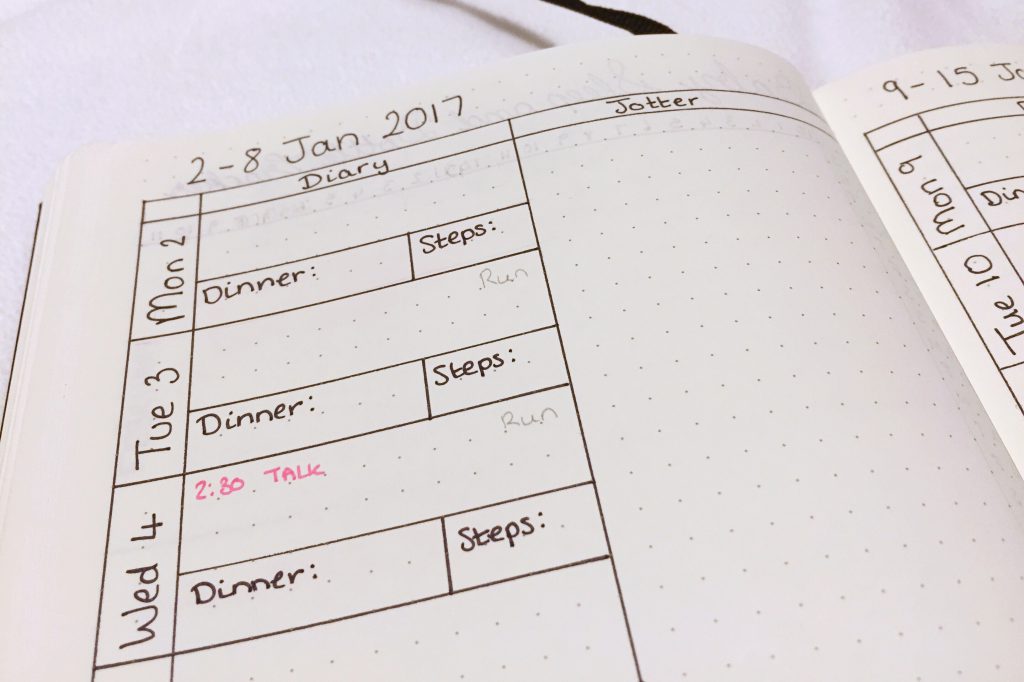 2-8 Jan 2017
Diary
Jotter
Mon 2
Dinner:
Steps:
Run
Tue 3
Dinner:
Steps:
Run
2:30 TALK
Wed 4
Dinner:
Steps:
9-15
Mon 9
Tue 10